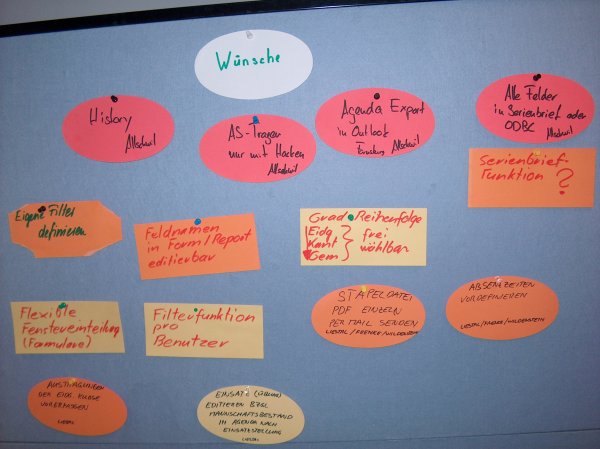 Wünsche
History
Allschwil
AS-Tragen
nur mit Haken
Allschwil
Agenda Export
in Outlook
Allschwil
Alle Felder
in Serienbrief oder
ODBC
Allschwil
Serienbrief-
funktion ?
Eigene Filter
definieren
Feldnamen
in Form/Report
editierbar
Grad Reihenfolge
Eidg
Kant
Gem
frei
wählbar
Flexible
Fenstereinteilung
(Formulare)
Filterfunktion
pro
Benutzer
STAPELDATEI
PDF EINZELN
PER MAIL SENDEN
LIESTAL / FRENKE / WILDENSTEIN
ABSENZZEITEN
VORDEFINIEREN
LIESTAL / FRENKE / WILDENSTEIN
DER EIDG. KLASSE
LIESTAL
EINSATZ
EDITIEREN BZGL
MANNSCHAFTSBESTAND
IN AGENDA NACH
EINSATZERSTELLUNG
LIESTAL